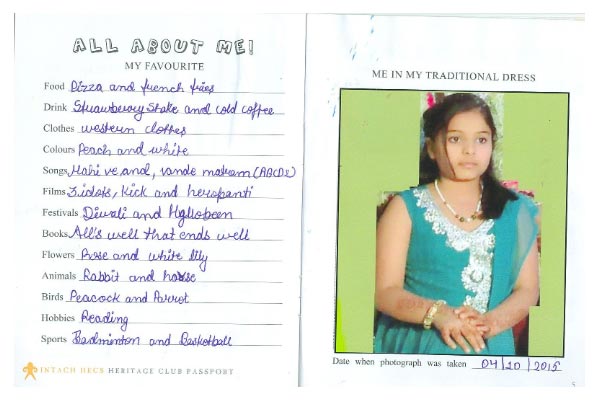 ALL ABOUT ME!
MY FAVOURITE
Food Pizza and french fries
Drink Strawberry Shake and cold coffee
Clothes western clothes
Colours Peach and white
Songs Mahi ve and, vande matram (ABCD2)
Films 3 idots, Kick and heropanti
Festivals Diwali and Holloheen
Books All's well that ends well
Flowers Rose and white lily
Animals Rabbit and horse
Birds Peacock and Parrot
Hobbies Reading
Sports Badminton and Basketball
INTACH HECS HERITAGE CLUB PASSPORT
ME IN MY TRADITIONAL DRESS
Date when photograph was taken 04/20/2015